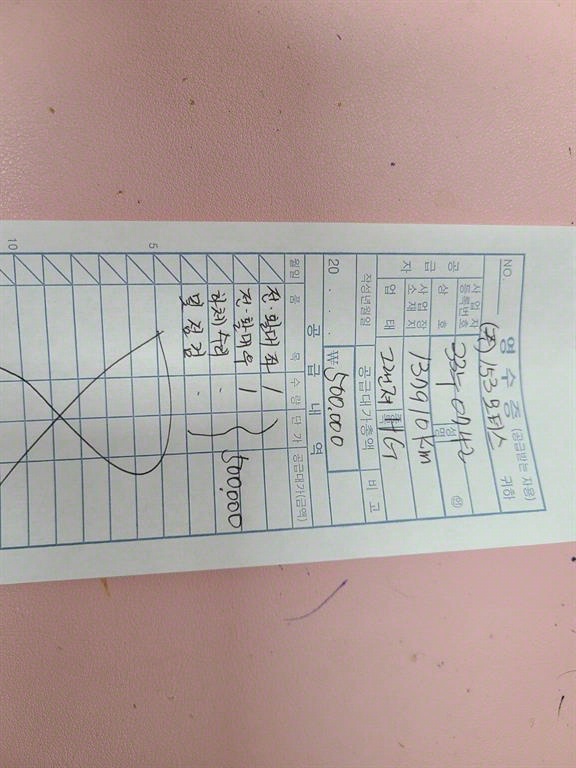 NO.
영수증 (공급받는 자용)
귀하
공급자
사업자
등록번호
상호
성명
㊞
사업장
소재지
137910km
업태 그랜져 HG
작성년월일 공급대가총액 비고
20 . . . ₩ 500,000
공급내역
월일 품목 수량 단가 공급대가(금액)
전.활대 좌 1
전.활대 우 1 500,000
하체수리
및 점검
5
10